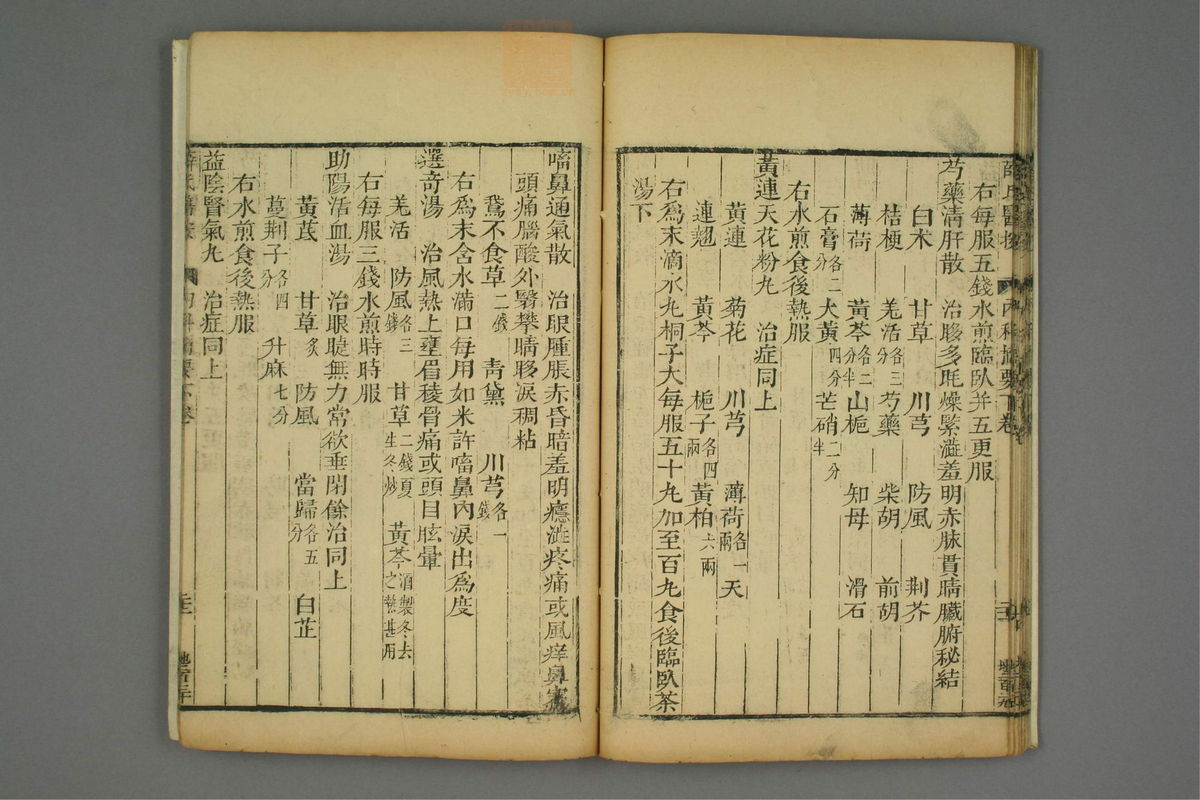 薛氏醫按　內科摘要下卷
右每服五錢水煎臨臥并五更服
芍藥淸肝散　治眵多眊燥緊澁羞明赤脉貫睛臟腑秘結
白术　甘草　川芎　防風　荆芥
桔梗　羌活各三分　芍藥　柴胡　前胡
薄荷　黃芩各二分半　山梔　知母　滑石
石膏各二分　大黃四分　芒硝二分半
右水煎食後熱服
黃連天花粉丸　治症同上
黃連　菊花　川芎　薄荷各一兩　天
連翹　黃芩　梔子各四兩　黃柏六兩
右爲末滴水丸桐子大每服五十丸加至百丸食後臨臥茶
湯下
嗜鼻通氣散　治眼腫脹赤昏暗羞明癮澁疼痛或風痒鼻塞
頭痛腦酸外翳攀睛眵淚稠粘
鵞不食草二錢　靑黛　川芎各一錢
右爲末含水滿口每用如米許嗜鼻內淚出爲度
選奇湯　治風熱上壅眉稜骨痛或頭目眩暈
羌活　防風各三錢　甘草二錢夏生冬炒　黃芩酒製冬去之熱甚用
右每服三錢水煎時時服
助陽活血湯　治眼睫無力常欲垂閉餘治同上
黃芪　甘草炙　防風　當歸各五分　白芷
蔓荆子各四分　升麻七分
右水煎食後熱服
益陰腎氣丸　治症同上